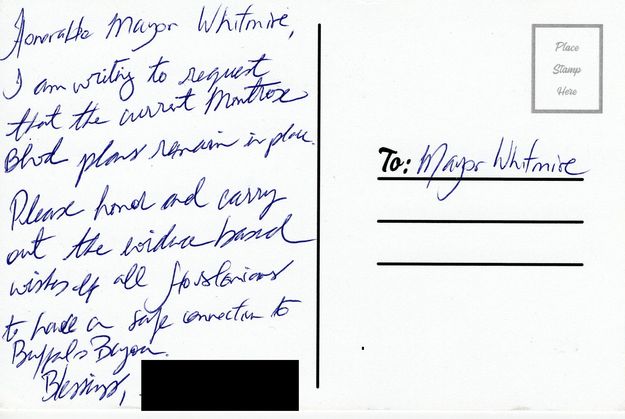 Honorable Mayor Whitmire,
I am writing to request
that the current Montrose
Blvd plans remain in place.
Please honor and carry
out the evidence based
wishes of all Houstonians
to have a safe connection to
Buffalo Bayou.
Blessings,
Place
Stamp
Here
To: Mayor Whitmire